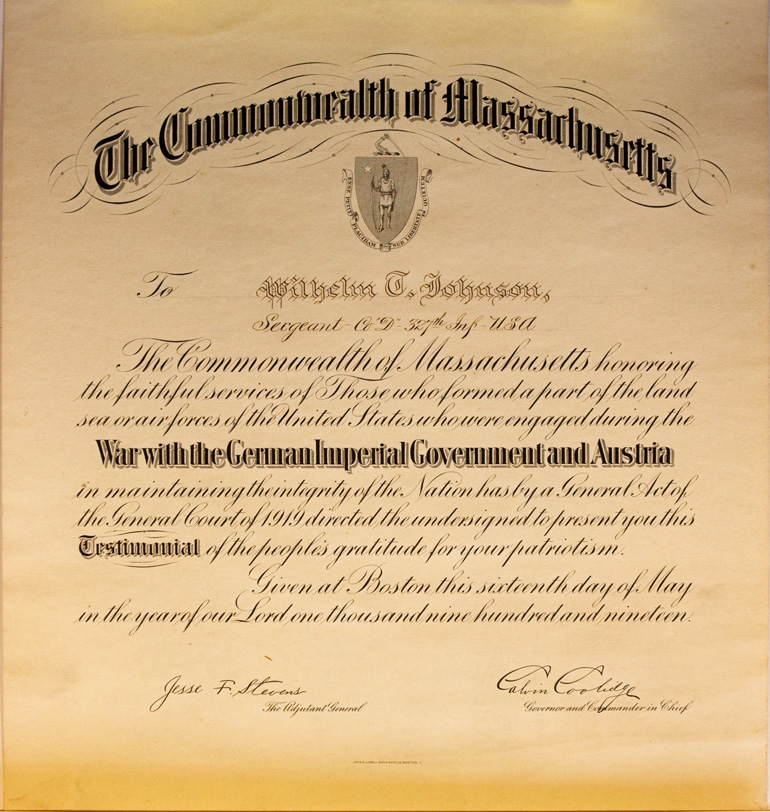 The Commonwealth of Massachusetts
ENSE PETIT PLACIDAM SUB LIBERTATE QUIETEM
To Wilhelm T. Johnson,
Sergeant - Co "D" - 327th Inf - USA
The Commonwealth of Massachusetts honoring
the faithful services of Those who formed a part of the land
sea or air forces of the United States who were engaged during the
War with the German Imperial Government and Austria
in maintaining the integrity of the Nation has by a General Act of
the General Court of 1919 directed the undersigned to present you this
Testimonial of the people's gratitude for your patriotism.
Given at Boston this sixteenth day of May
in the year of our Lord one thousand nine hundred and nineteen.
Jesse F. Stevens Calvin Coolidge
The Adjutant General Governor and Commander in Chief